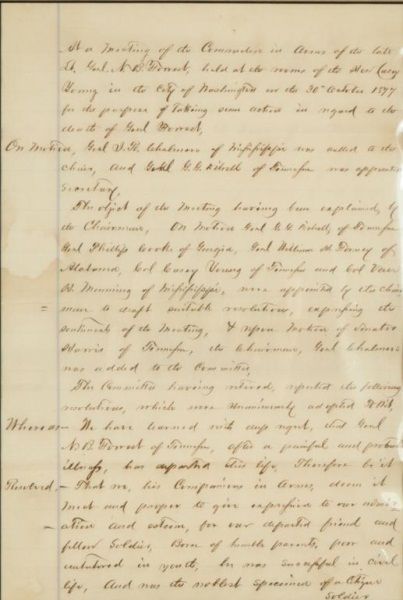 At a Meeting of the Comrades in Arms of the late
Lt. Genl N. B. Forrest, held at the rooms of the Hon Casey
Young in the City of Washington on the 30th October 1877
for the purpose of taking some action in regard to the
death of Genl Forrest,
On Motion, Genl J. R. Chalmers of Mississippi was called to the
chair, and Genl G. G. Dibrell of Tennessee was appointed
Secretary,
The object of the Meeting having been explained by
the Chairman, On Motion Genl G. G. Dibrell, of Tennessee
Genl Phillip Cooke of Georgia, Genl William H. Forney of
Alabama, Col Casey Young of Tennessee and Col Van
H. Manning of Mississippi, were appointed by the chair
man to draft suitable resolutions, expressing the
= sentiments of the Meeting, & upon Motion of Senator
Harris of Tennessee, the Chairman, Genl Chalmers
was added to the Committee,
The Committee having retired, reported the following
resolutions, which were Unanimously adopted
Whereas - We have learned with deep regret, that Genl
N. B. Forrest of Tennessee, after a painful and
illness, has departed this life, Therefore be it
Resolved, - That we, his Companions in Arms, deem it
Meet and proper to give expression to our admir-
- ation and esteem, for our departed friend and
fellow Soldier, Born of humble parents, poor and
untutored in youth, he was successful in civil
life, And was the noblest specimen of a
Soldier